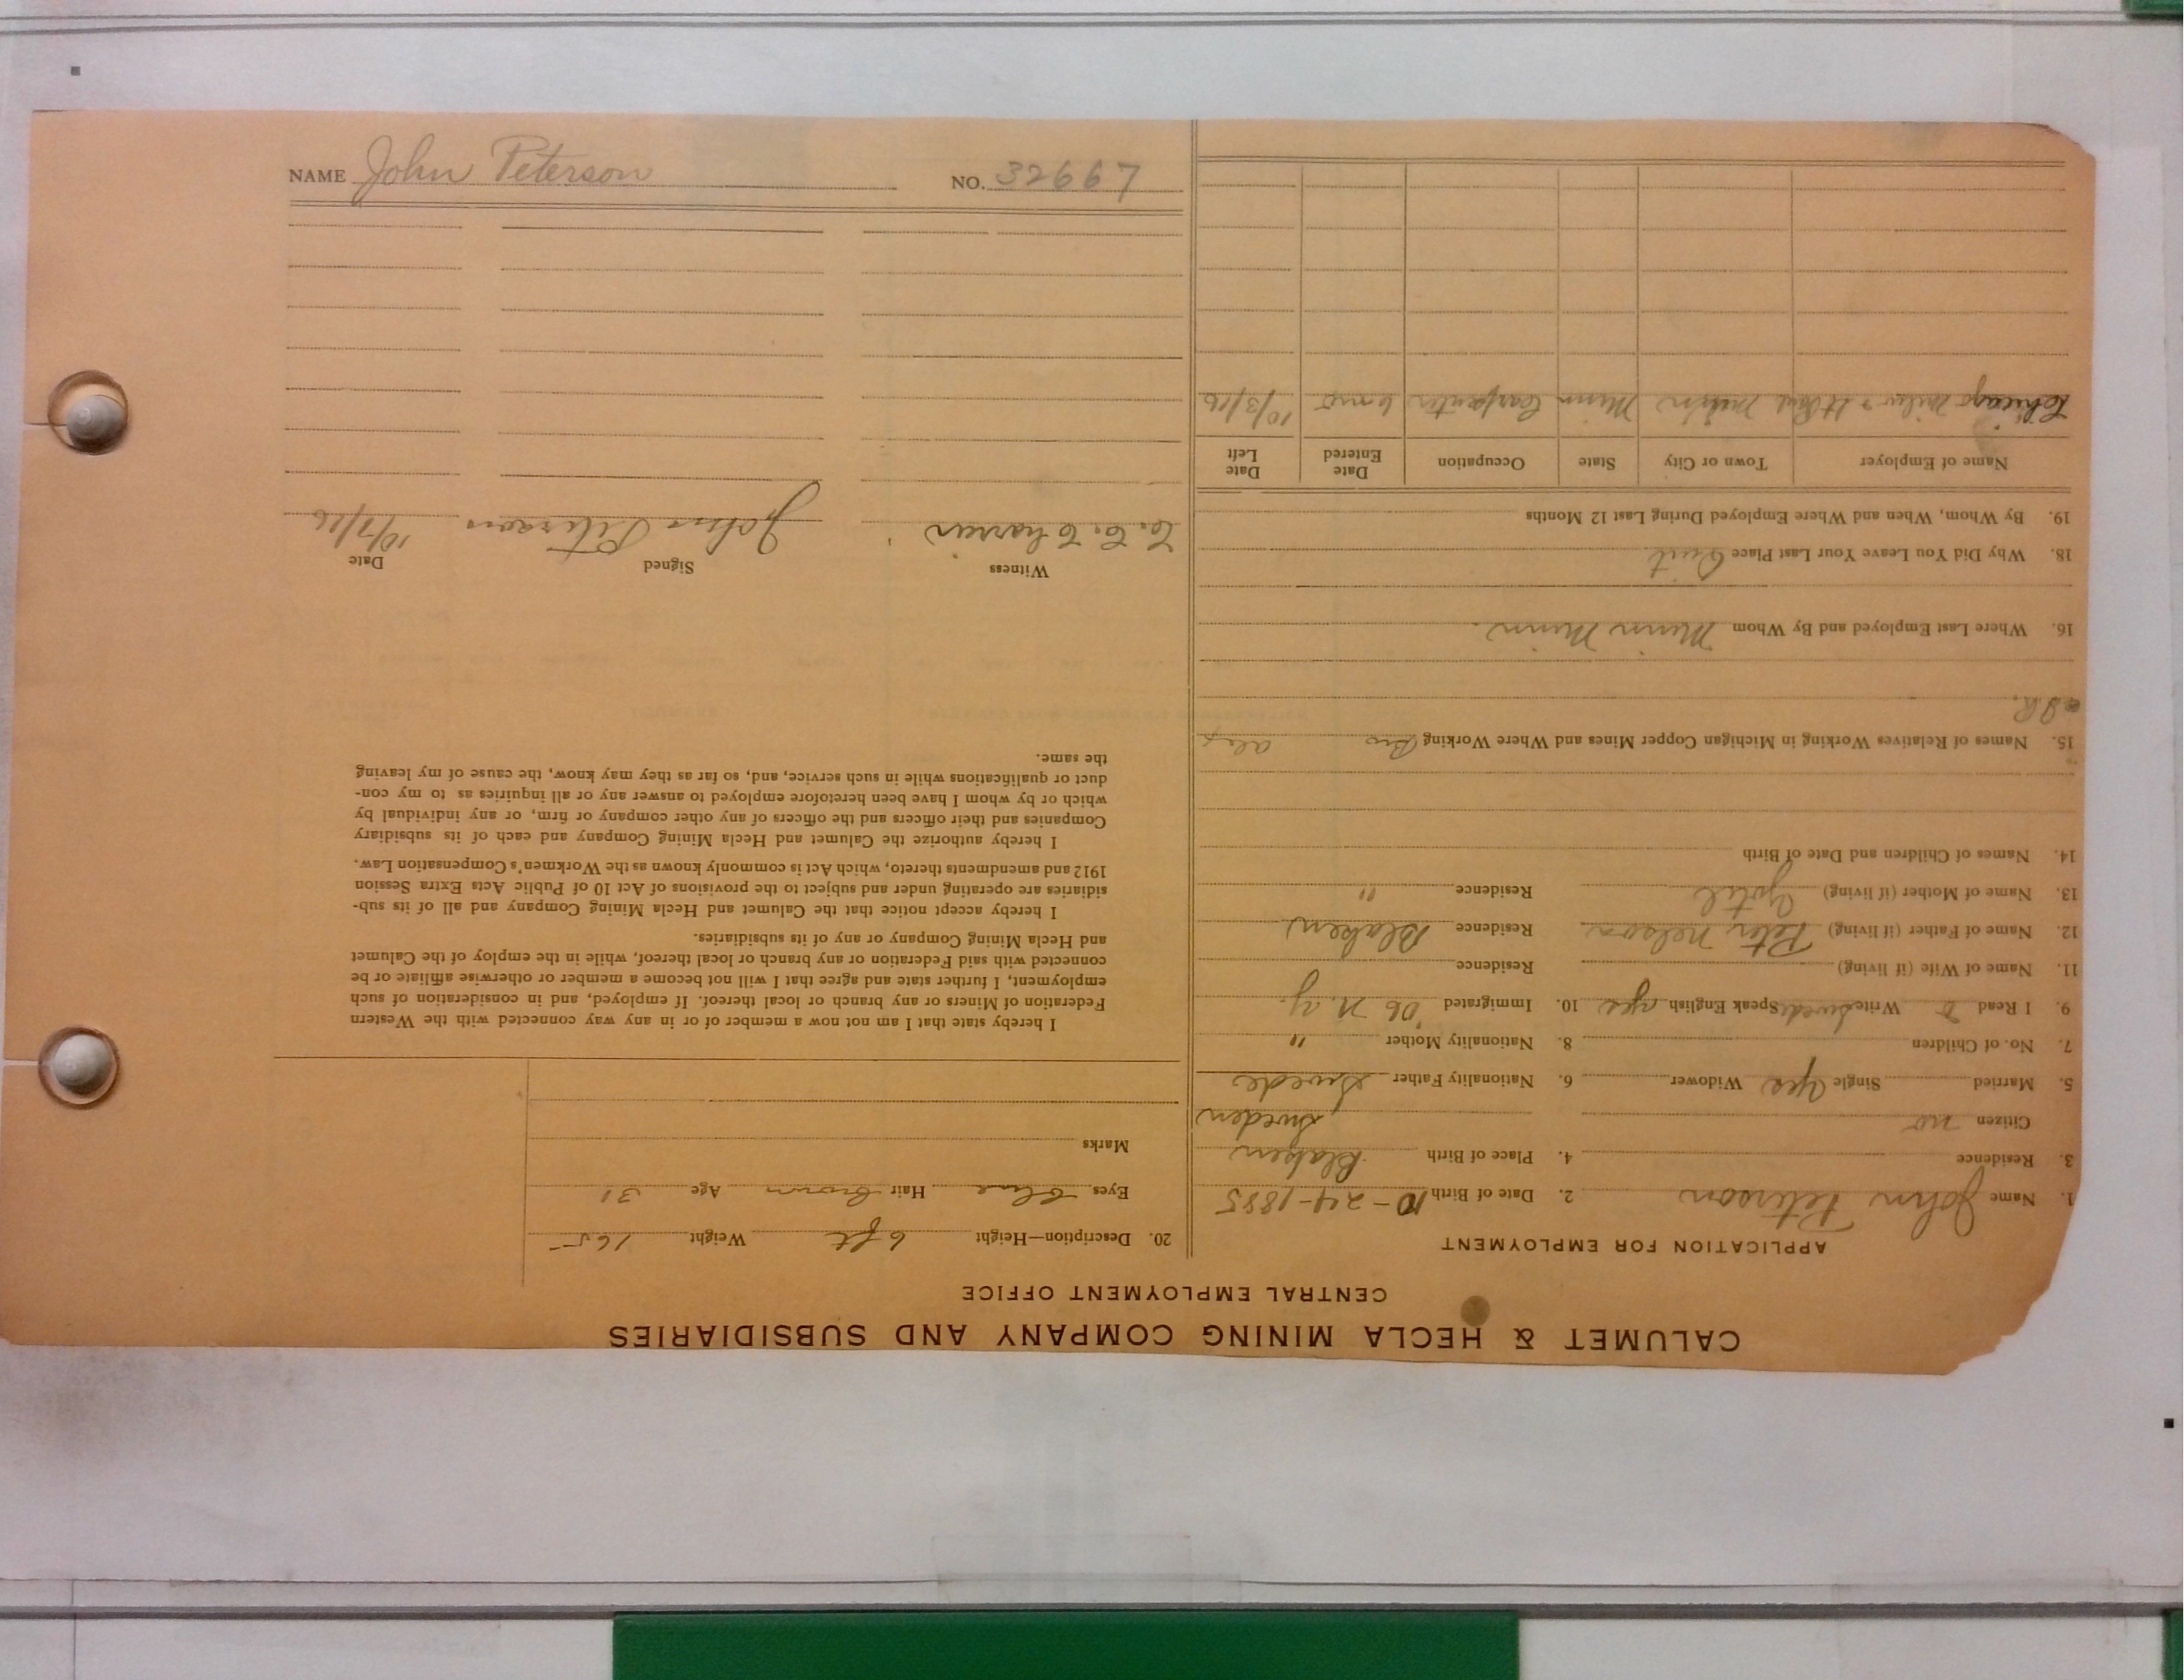 CALUMET & HECLA MINING COMPANY AND SUBSIDIARIES
CENTRAL EMPLOYMENT OFFICE
APPLICATION FOR EMPLOYMENT
1. Name John Peterson 2. Date of Birth 10-24-1885
3. Residence 4. Place of Birth Blaken
Citizen no Sweden
5. Married Single Yes Widower 6. Nationality Father Swede
7. No. of Children 8. Nationality Mother "
9. I Read & Write Swede Speak English Yes 10. Immigrated '06 N.Y.
11. Name of Wife (if living) Residence
12. Name of Father (if living) Peter Nelson Residence Blaken
13. Name of Mother (if living) Residence "
14. Names of Children and Date of Birth
15. Names of Relatives Working in Michigan Copper Mines and Where Working Bro Alex
16. Where Last Employed and By Whom Minn Minn.
18. Why Did You Leave Your Last Place Quit
19. By Whom, When and Where Employed During Last 12 Months
Name of Employer Town or City State Occupation Date Entered Date Left
Chicago Milw & St Paul Minn Carpenter 6 mo 10/3/16
20. Description—Height 6 ft Weight 165
Eyes Blue Hair Brown Age 31
Marks
I hereby state that I am not now a member of or in any way connected with the Western
Federation of Miners or any branch or local thereof. If employed, and in consideration of such
employment, I further state and agree that I will not become a member or otherwise affiliate or be
connected with said Federation or any branch or local thereof, while in the employ of the Calumet
and Hecla Mining Company or any of its subsidiaries.
I hereby accept notice that the Calumet and Hecla Mining Company and all of its sub-
sidiaries are operating under and subject to the provisions of Act 10 of Public Acts Extra Session
1912 and amendments thereto, which Act is commonly known as the Workmen's Compensation Law.
I hereby authorize the Calumet and Hecla Mining Company and each of its subsidiary
Companies and their officers and the officers of any other company or firm, or any individual by
which or by whom I have been heretofore employed to answer any or all inquiries as to my con-
duct or qualifications while in such service, and, so far as they may know, the cause of my leaving
the same.
Witness Signed Date
John Peterson 10/7/16
NAME John Peterson NO. 32667